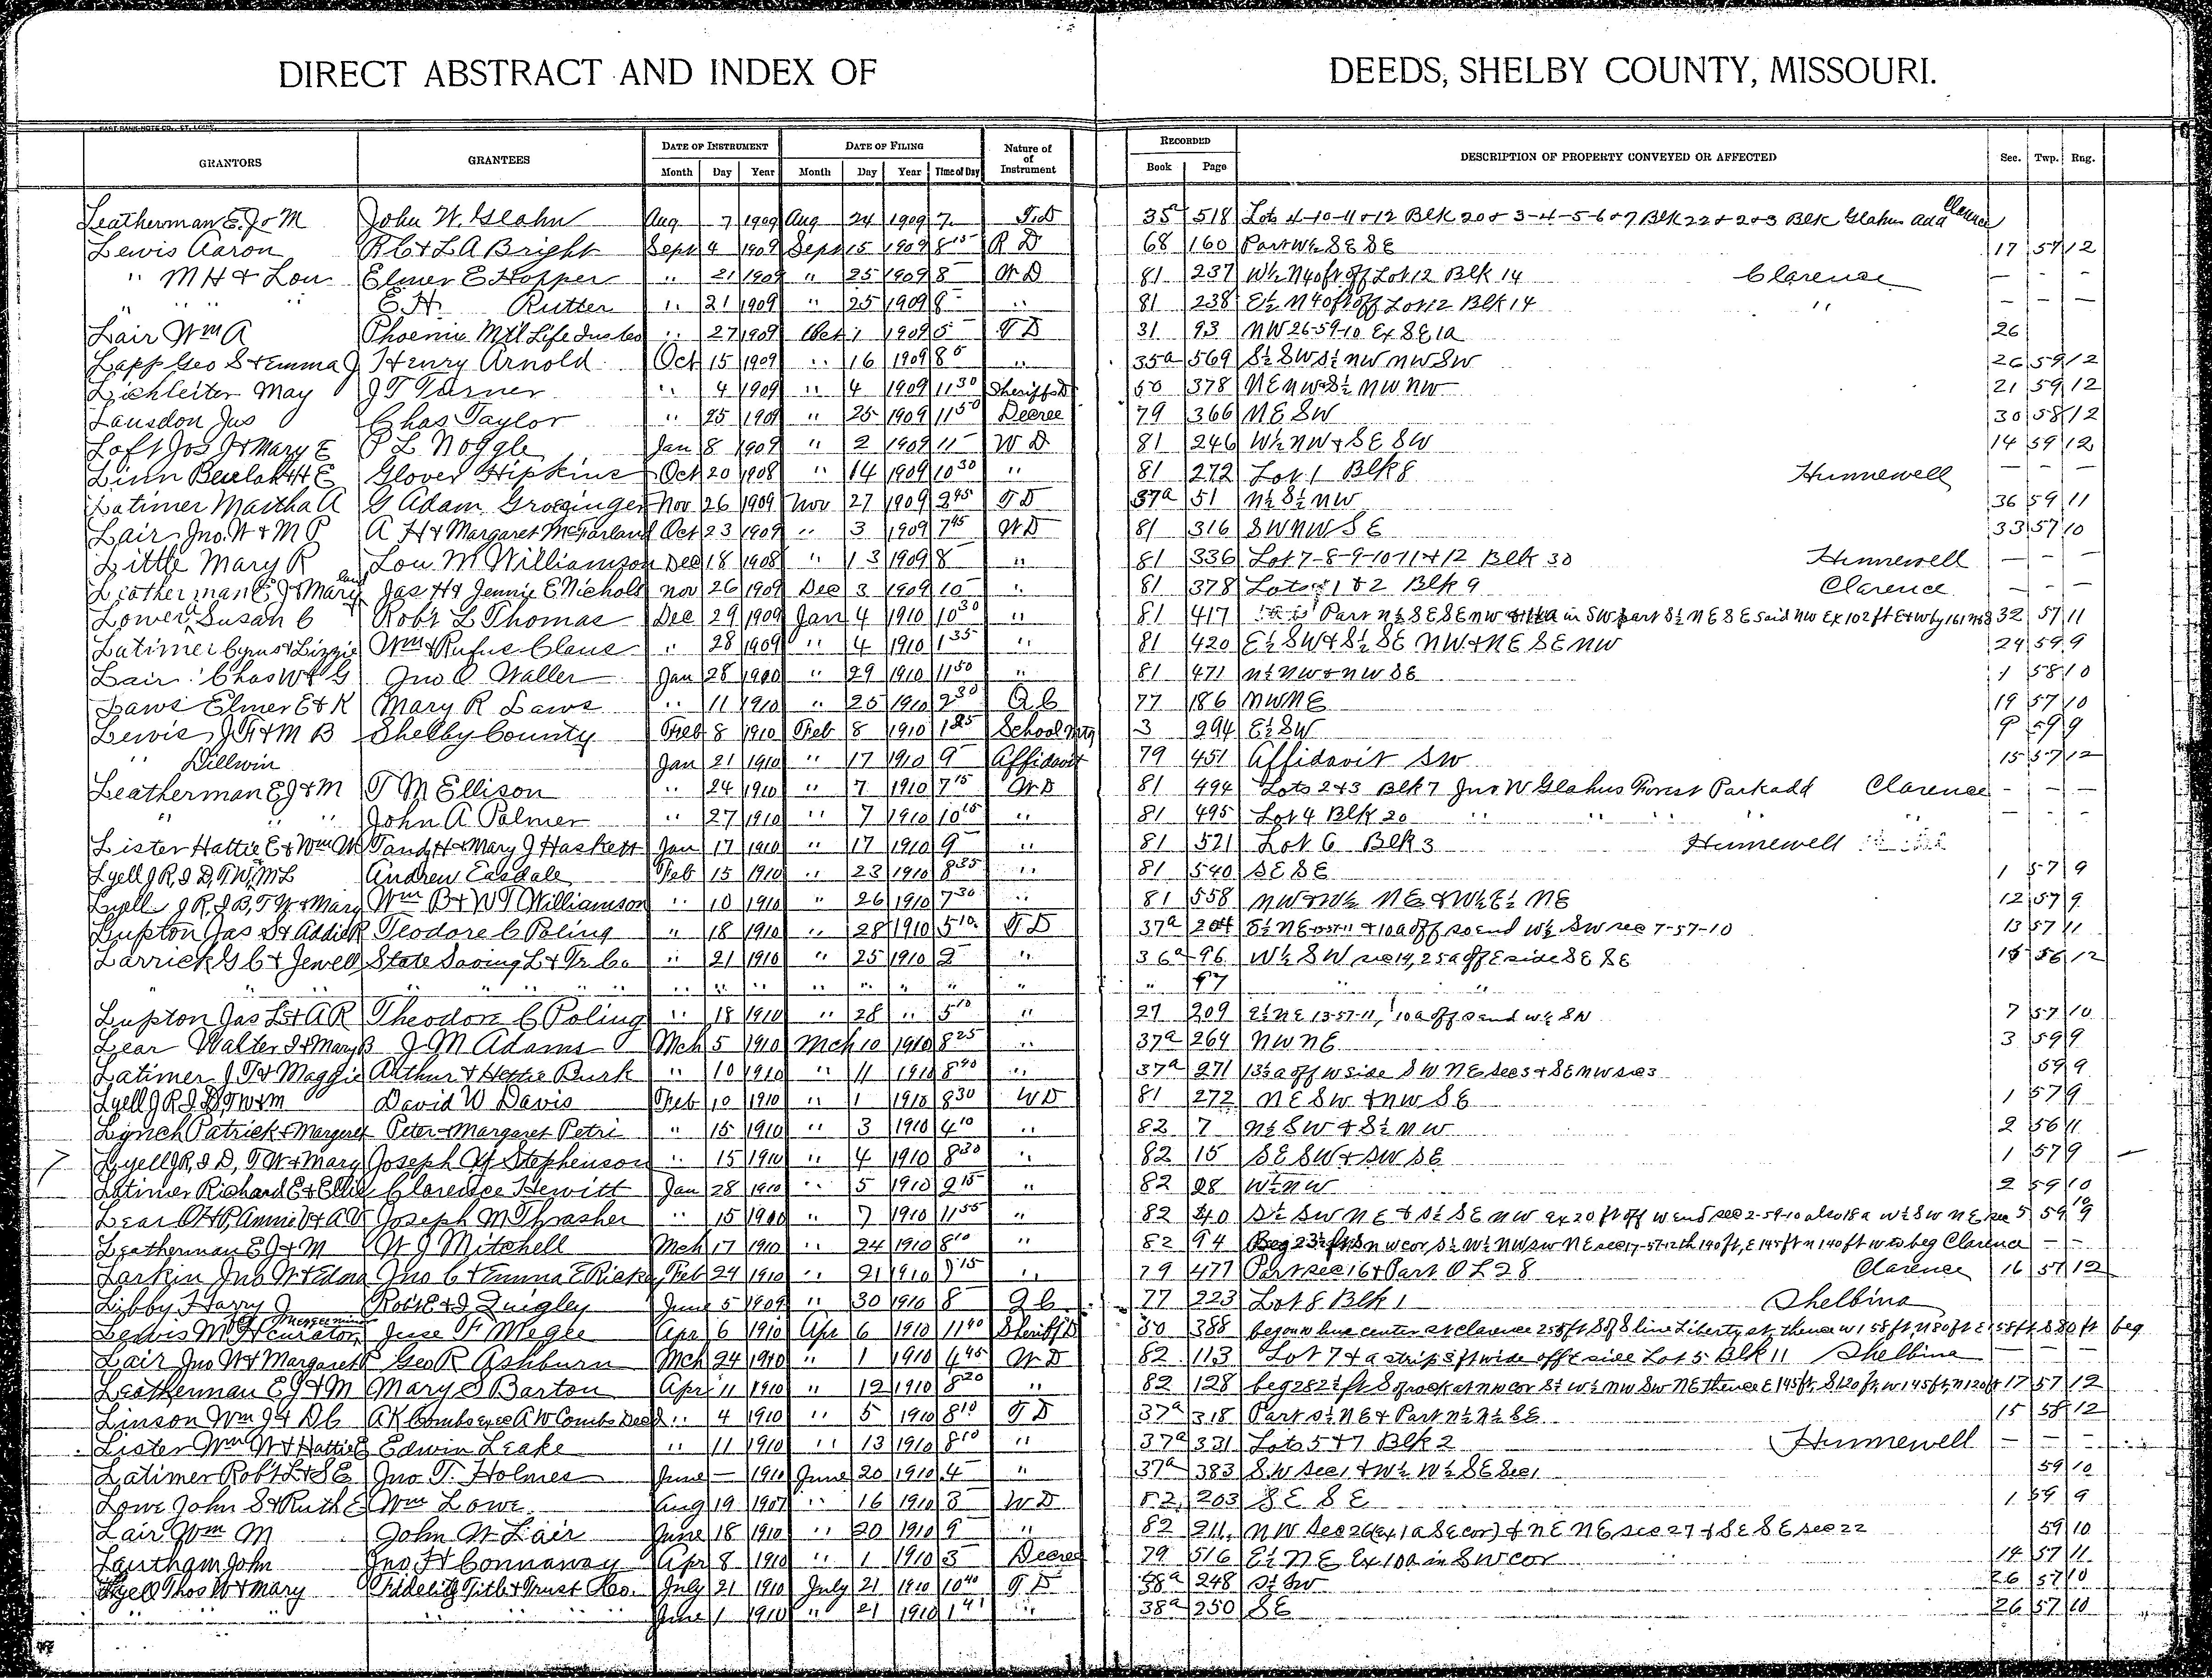 DIRECT ABSTRACT AND INDEX OF DEEDS, SHELBY COUNTY, MISSOURI.
GRANTORS GRANTEES DATE OF INSTRUMENT DATE OF FILING Nature of of Instrument RECORDED DESCRIPTION OF PROPERTY CONVEYED OR AFFECTED Sec. Twp. Rng.
Month Day Year Month Day Year Time of Day Book Page
Leatherman E. J & M John W. Glahn Aug 7 1909 Aug 24 1909 7 T.D 35 518 Lots 4-10-11 & 12 Blk 20 & 3-4-5-6 & 7 Blk 22 & 2 & 3 Blk Glahns add Clarence
Lewis Aaron R C & L A Bright Sept 4 1909 Sept 15 1909 8 15 R D 68 160 Part W½ SE SE 17 57 12
" M H & Lou Elmer E Hopper " 21 1909 " 25 1909 8 W D 81 237 W½ N 40 ft off Lot 12 Blk 14 Clarence — — —
" " " " E. H. Rutter " 21 1909 " 25 1909 8 " 81 238 E½ N 40 ft off Lot 12 Blk 14 " — — —
Lair Wm A Phoenix Mut'l Life Ins Co " 27 1909 Oct 1 1909 5 T D 31 93 NW 26-59-10 Ex SE 1a 26
Lapp Geo S & Emma J Henry Arnold Oct 15 1909 " 16 1909 8 " 35a 569 S½ SW S½ NW NW SW 26 59 12
Lichleiter May J T Turner " 4 1909 " 4 1909 11 30 Sheriffs D 50 378 NE NW & S½ NW NW 21 59 12
Lansdon Jas Chas Taylor " 25 1909 " 25 1909 11 50 Decree 79 366 NE SW 30 58 12
Loft Jos J & Mary E P L Noggle Jan 8 1909 " 2 1909 11 W D 81 246 W½ NW & SE SW 14 59 12
Linn Beulah H E Glover Hipkins Oct 20 1908 " 14 1909 10 30 " 81 272 Lot 1 Blk 8 Hunnewell — —
Latimer Martha A G Adam Groezinger Nov 26 1909 Nov 27 1909 2 45 T D 37a 51 N½ S½ NW 36 59 11
Lair Jno. W & M P A H & Margaret McFarland Oct 23 1909 " 3 1909 7 45 W D 81 316 SW NW SE 33 57 10
Little Mary R Lou M Williamson Dec 18 1908 " 13 1909 8 " 81 336 Lot 7-8-9-10 11 & 12 Blk 30 Hunnewell — — —
Leatherman E J & Mary Jas H & Jennie E Nichols Nov 26 1909 Dec 3 1909 10 " 81 378 Lots 1 & 2 Blk 9 Clarence — —
Lower, Susan C Rob't L Thomas Dec 29 1909 Jan 4 1910 10 30 " 81 417 Part N½ SE SE NW in SW part S½ NE SE said NW Ex 102 ft E & W by 161 32 57 11
Latimer Cyrus & Lizzie Wm & Rufus Claus " 28 1909 " 4 1910 1 35 " 81 420 E½ SW & S½ SE NW & NE SE NW 24 59 9
Lair Chas W & G Jno O Waller Jan 28 1910 " 29 1910 11 50 " 81 471 N½ NW & NW SE 1 58 10
Laws Elmer E & K Mary R Laws " 11 1910 " 25 1910 2 30 Q C 77 186 NW NE 19 57 10
Lewis J T & M B Shelby County Feb 8 1910 Feb 8 1910 1 25 School Mtg 3 294 E½ SW 9 59 9
" Dillwin Jan 21 1910 " 17 1910 9 Affidavit 79 451 Affidavit SW 15 57 12
Leatherman E J & M T M Ellison " 24 1910 " 7 1910 7 15 W D 81 494 Lots 2 & 3 Blk 7 Jno W Glahns Forest Park add Clarence — — —
" " " John A Palmer " 27 1910 " 7 1910 10 15 " 81 495 Lot 4 Blk 20 " " " — — —
Lister Hattie E & Wm W Tandy H & Mary J Haskett Jan 17 1910 " 17 1910 9 " 81 521 Lot 6 Blk 3 Hunnewell
Lyell J R, J D, T W, M L Andrew Easdale Feb 15 1910 " 23 1910 8 35 " 81 540 SE SE 1 57 9
Lyell J R, J B, T W & Mary Wm B & W T Williamson " 10 1910 " 26 1910 7 30 " 81 558 NW & W½ NE & W½ E½ NE 12 57 9
Lupton Jas S & Addie R Teodore C Poling " 18 1910 " 28 1910 5 10 T D 37a 204 E½ NE 13-57-11 & 10a off so end W½ SW sec 7-57-10 13 57 11
Larrick G C & Jewell State Saving L & Tr. Co " 21 1910 " 25 1910 2 " 36a 96 W½ SW sec 14, 25a off E side SE SE 15 56 12
" " " " " " " " " " " " " " " " " " 97 " "
Lupton Jas L & A R Theodore C Poling " 18 1910 " 28 " 5 10 " 27 209 E½ NE 13-57-11, 10a off so end W½ SW 7 57 10
Lear Walter S & Mary B J M Adams Mch 5 1910 Mch 10 1910 8 25 " 37a 264 NW NE 3 59 9
Latimer J T & Maggie Arthur & Hettie Burk " 10 1910 " 11 1910 8 40 " 37a 271 13½a off W side SW NE Sec 3 & SE NW sec 3 59 9
Lyell J R J D, T W & M David W Davis Feb 10 1910 " 1 1910 8 30 W D 81 272 NE SW & NW SE 1 57 9
Lynch Patrick & Margaret Peter & Margaret Petri " 15 1910 " 3 1910 4 10 " 82 7 N½ SW & S½ NW 2 56 11
Lyell J R, J D, T W & Mary Joseph Y Stephenson " 15 1910 " 4 1910 8 30 " 82 15 SE SW & SW SE 1 57 9
Latimer Richard E & Ellie Clarence Hewitt Jan 28 1910 " 5 1910 9 15 " 82 28 W½ NW 2 59 10
Lear O H P, Annie V & A V Joseph M Thrasher " 15 1910 " 7 1910 11 55 " 82 40 S½ SW NE & S½ SE NW ex 20 ft off W end sec 2-59-10 also 18a W½ SW NE sec 5 59 9
Leatherman E J & M W J Mitchell Mch 17 1910 " 24 1910 8 10 " 82 94 Beg 23½ ft S NW cor, S½ W½ NW SW NE sec 17-57-12 th 140 ft, E 145 ft N 140 ft W to beg Clarence — —
Larkin Jno W & Edna Jno C & Emma E Ricks Feb 24 1910 " 21 1910 9 15 " 79 477 Part sec 16 & Part O L 28 Clarence 16 57 12
Libby Harry J Rob't E & J Quigley June 5 1909 " 30 1910 8 Q C 77 223 Lot 8 Blk 1 Shelbina
Lewis M H curator Jesse F Megee Apr 6 1910 Apr 6 1910 11 40 Sheriff D 50 388 beg on W line center st Clarence 255 ft S of S line Liberty st, thence W 158 ft, N 80 ft E 158 ft S 80 ft beg
Lair Jno W & Margaret P Geo R Ashburn Mch 24 1910 " 1 1910 4 45 W D 82 113 Lot 7 & a strip 8 ft wide off E side Lot 5 Blk 11 Shelbina — — —
Leatherman E J & M Mary S Barton Apr 11 1910 " 12 1910 8 20 " 82 128 beg 282½ ft S of rock at NW cor S½ W½ NW SW NE thence E 145 ft, S 120 ft, W 145 ft, N 120 ft 17 57 12
Linson Wm J & D C A K Combs exec A W Combs Dec'd " 4 1910 " 5 1910 8 10 T D 37a 318 Part S½ NE & Part N½ N½ SE 15 58 12
Lister Wm W & Hattie E Edwin Leake " 11 1910 " 13 1910 8 10 " 37a 331 Lots 5 & 7 Blk 2 Hunnewell — — —
Latimer Rob't L & S E Jno T. Holmes June — 1910 June 20 1910 4 " 37a 383 SW Sec 1 & W½ W½ SE Sec 1 59 10
Lowe John S & Ruth E Wm Lowe Aug 19 1907 " 16 1910 3 W D 82 203 SE SE 1 59 9
Lair Wm M John W Lair June 18 1910 " 20 1910 9 " 82 211 NW Sec 26 (ex 1a SE cor) & NE NE sec 27 & SE SE sec 22 59 10
Lantham John Jno. H Connaway Apr 8 1910 " 1 1910 3 Decree 79 516 E½ NE Ex 10a in SW cor 14 57 11
Lyell Thos W & Mary Fidelity Title & Trust Co. July 21 1910 July 21 1910 10 40 T D 38a 248 S½ SW 26 57 10
" " " " " " " June 1 1910 " 21 1910 1 41 " 38a 250 SE 26 57 10